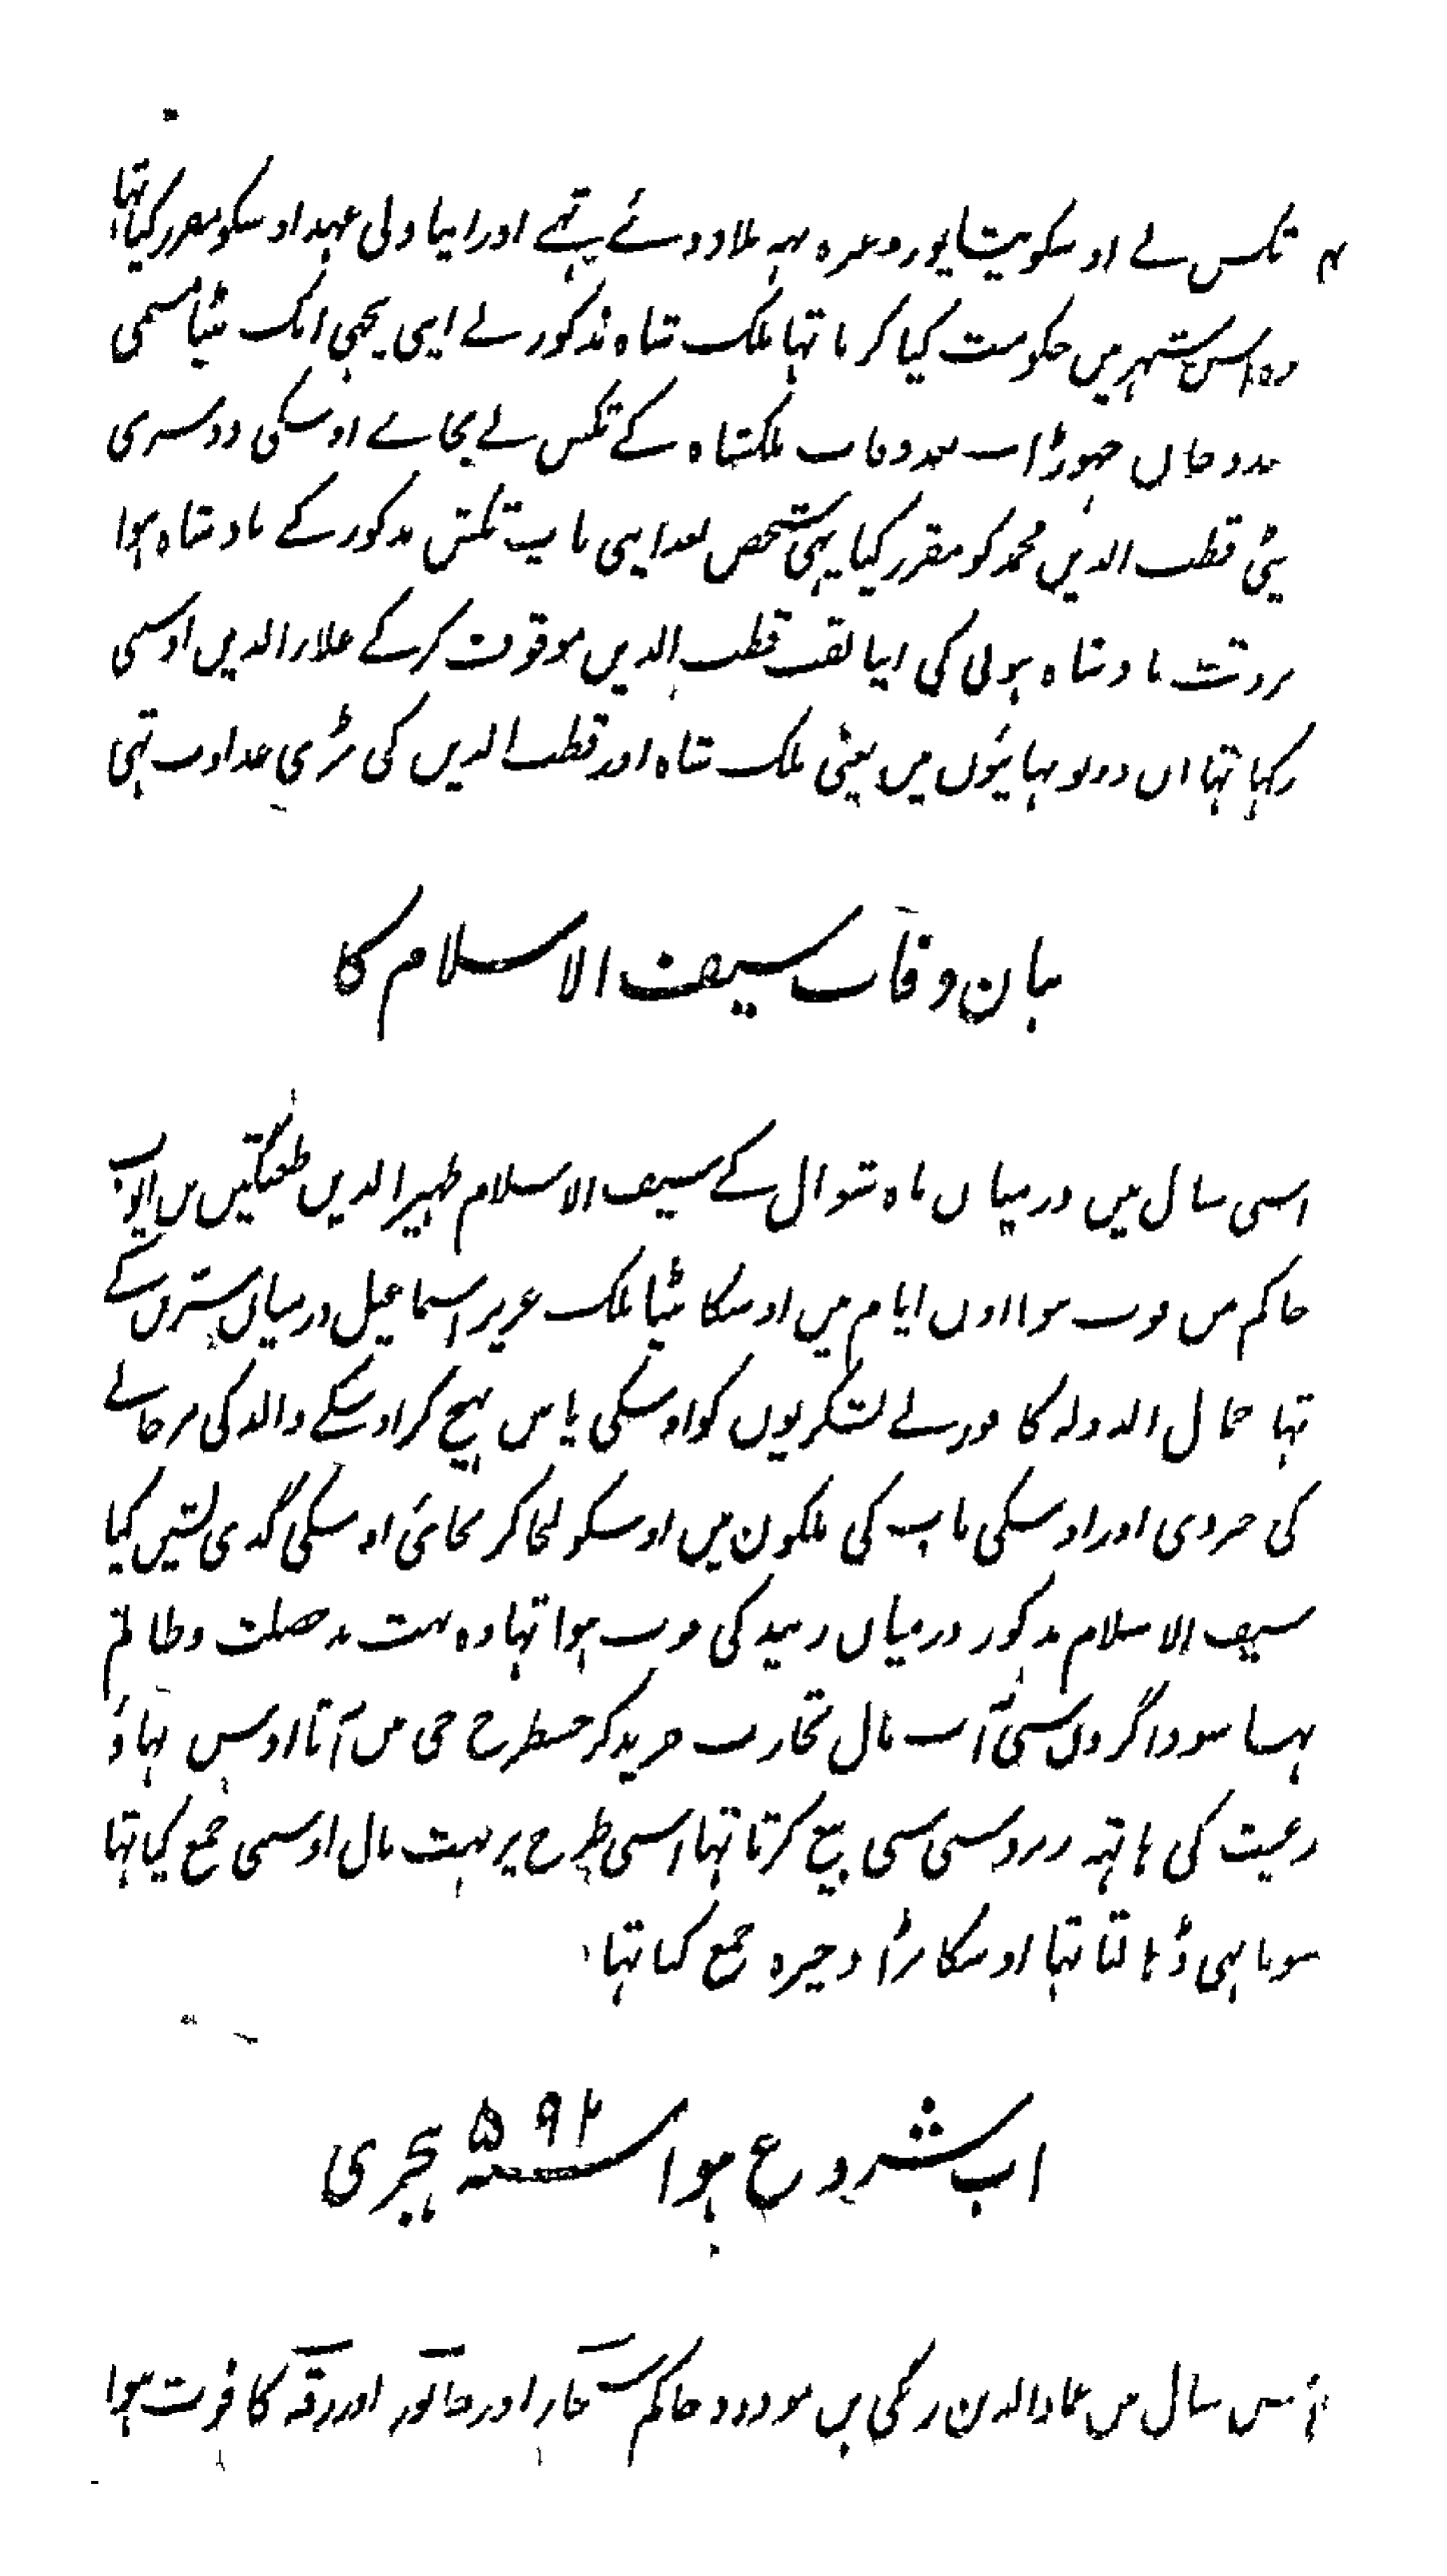 تکس نے اوسکو نیشاپور وغیرہ یہہ بلاد دئے تہے اور اپنا ولی عہد اوسکو مقرر کیا تہا
وہ اس شہر میں حکومت کیا کرتا تہا ملک شاہ مذکور نے اپنی پیچہی ایک بیٹا مسمی
ہندوخان چہوڑا اب بعد وفات ملکشاہ کے تکس نے بجاے اوسکی دوسری
بیٹی قطب الدین محمد کو مقرر کیا یہی شخص بعد اپنی باپ تکش مذکور کے بادشاہ ہوا
بروقت بادشاہ ہونی کی اپنا لقب قطب الدین موقوف کرکے علاء الدین اوسنی
رکہا تہا ان دونو بہائیوں میں یعنی ملک شاہ اور قطب الدین کی بڑی عداوت تہی
بیان وفات سیف الاسلام کا
اسی سال میں درمیان ماہ شوال کے سیف الاسلام ظہیر الدین طغتگین بن ایوب
حاکم یمن فوت ہوا اون ایام میں اوسکا بیٹا ملک عزیز اسماعیل درمیان سترین کے
تہا جمال الدولہ کافور نے لشکریوں کو اوسکی پاس بہیج کر اوسکے والد کی مرجانے
کی خبر دی اور اوسکی باپ کی ملکون میں اوسکو لیجا کر بجائ اوسکی گدی نشین کیا
سیف الاسلام مذکور درمیان زبید کی فوت ہوا تہا وہ بہت بد خصلت و ظالم تہا
سوداگروں سی آپ مال تجارت خرید کر جسطرح جی میں آتا اوس بہاؤ
رعیت کی ہاتہہ زبردستی سی بیع کرتا تہا اسی طرح پر بہت مال اوسنی جمع کیا تہا
سونا بہی ڈہالتا تہا اوسکا بڑا ذخیرہ جمع کیا تہا
اب شروع ہوا سنہ ۵۹۴ ہجری
اس سال میں عماد الدین زنگی بن مودود حاکم سنجار اور خابور اور رقہ کا فوت ہوا